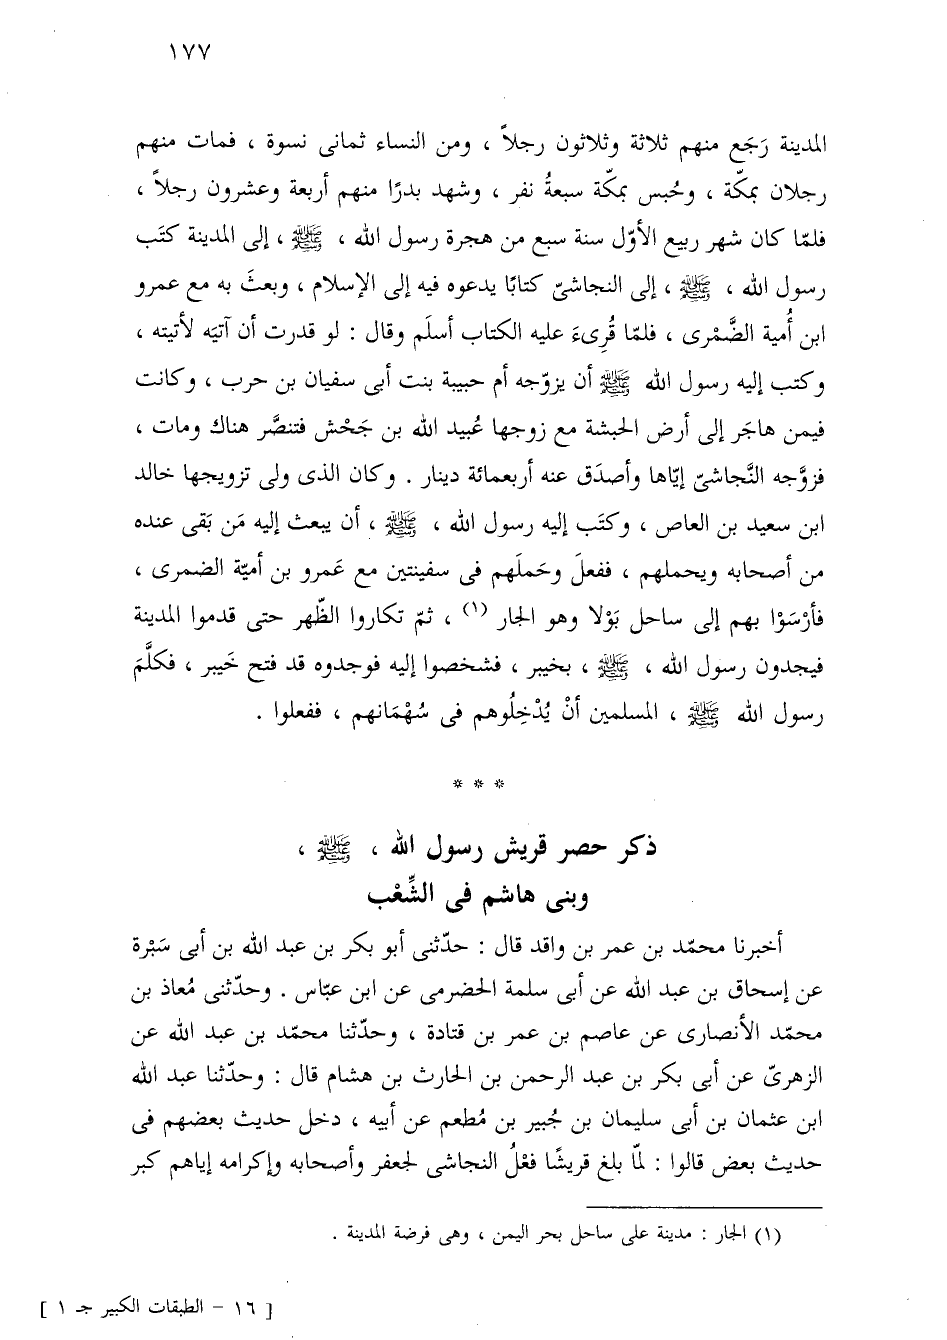 ١٧٧
المدينة رَجَع منهم ثلاثة وثلاثون رجلاً ، ومن النساء ثمانى نسوة ، فمات منهم
رجلان بمكّة ، وحُبس بمكّة سبعةُ نفر ، وشهد بدرًا منهم أربعة وعشرون رجلاً ،
فلمّا كان شهر ربيع الأوّل سنة سبع من هجرة رسول الله ، ﷺ ، إلى المدينة كتَب
رسول الله ، ﷺ ، إلى النجاشىّ كتابًا يدعوه فيه إلى الإسلام ، وبعثَ به مع عمرو
ابن أُمية الضَّمْرى ، فلمّا قُرِىءَ عليه الكتاب أسلَم وقال : لو قدرت أن آتيَه لأتيته ،
وكتب إليه رسول الله ﷺ أن يزوّجه أم حبيبة بنت أبى سفيان بن حرب ، وكانت
فيمن هاجَر إلى أرض الحبشة مع زوجها عُبيد الله بن جَحْش فتنصَّر هناك ومات ،
فزوَّجه النَّجاشىّ إيّاها وأصدَق عنه أربعمائة دينار . وكان الذى ولى تزويجها خالد
ابن سعيد بن العاص ، وكتَب إليه رسول الله ، ﷺ ، أن يبعث إليه مَن بَقى عنده
من أصحابه ويحملهم ، ففعلَ وحَملَهم فى سفينتين مع عَمرو بن أميّة الضمرى ،
فأرْسَوْا بهم إلى ساحل بَوْلا وهو الجار (١) ، ثمّ تكاروا الظّهر حتى قدموا المدينة
فيجدون رسول الله ، ﷺ ، بخيبر ، فشخصوا إليه فوجدوه قد فتح خَيبر ، فكلَّمَ
رسول الله ﷺ ، المسلمين أنْ يُدْخِلُوهم فى سُهْمَانهم ، ففعلوا .
* * *
ذكر حصر قريش رسول الله ، ﷺ ،
وبنى هاشم فى الشِّعْب
أخبرنا محمّد بن عمر بن واقد قال : حدّثنى أبو بكر بن عبد الله بن أبى سَبْرة
عن إسحاق بن عبد الله عن أبى سلمة الحضرمى عن ابن عبّاس . وحدّثنى مُعاذ بن
محمّد الأنصارى عن عاصم بن عمر بن قتادة ، وحدّثنا محمّد بن عبد الله عن
الزهرىّ عن أبى بكر بن عبد الرحمن بن الحارث بن هشام قال : وحدّثنا عبد الله
ابن عثمان بن أبى سليمان بن جُبير بن مُطعم عن أبيه ، دخل حديث بعضهم فى
حديث بعض قالوا : لمّا بلغ قريشًا فعْلُ النجاشى لجعفر وأصحابه وإكرامه إياهم كبر
(١) الجار : مدينة على ساحل بحر اليمن ، وهى فرضة المدينة .
[ ١٦ - الطبقات الكبير جـ ١ ]